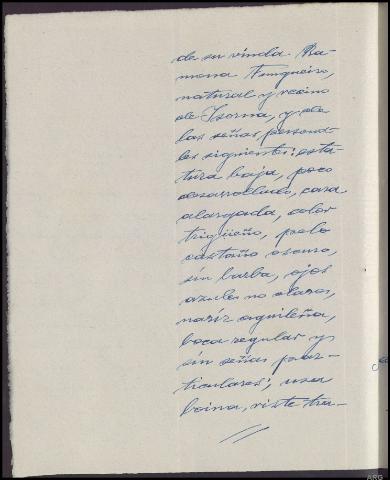 de su viuda Ra-
mona Fungueiro,
natural y vecino
de Isorna, y de
las señas persona-
les siguientes: esta-
tura baja, poco
desarrollado, cara
alargada, color
trigüeño, pelo
castaño oscuro,
sin barba, ojos
azules no claros,
naríz aguileña,
boca regular y
sin señas par-
ticulares; usa
boina, viste tra-
ARG